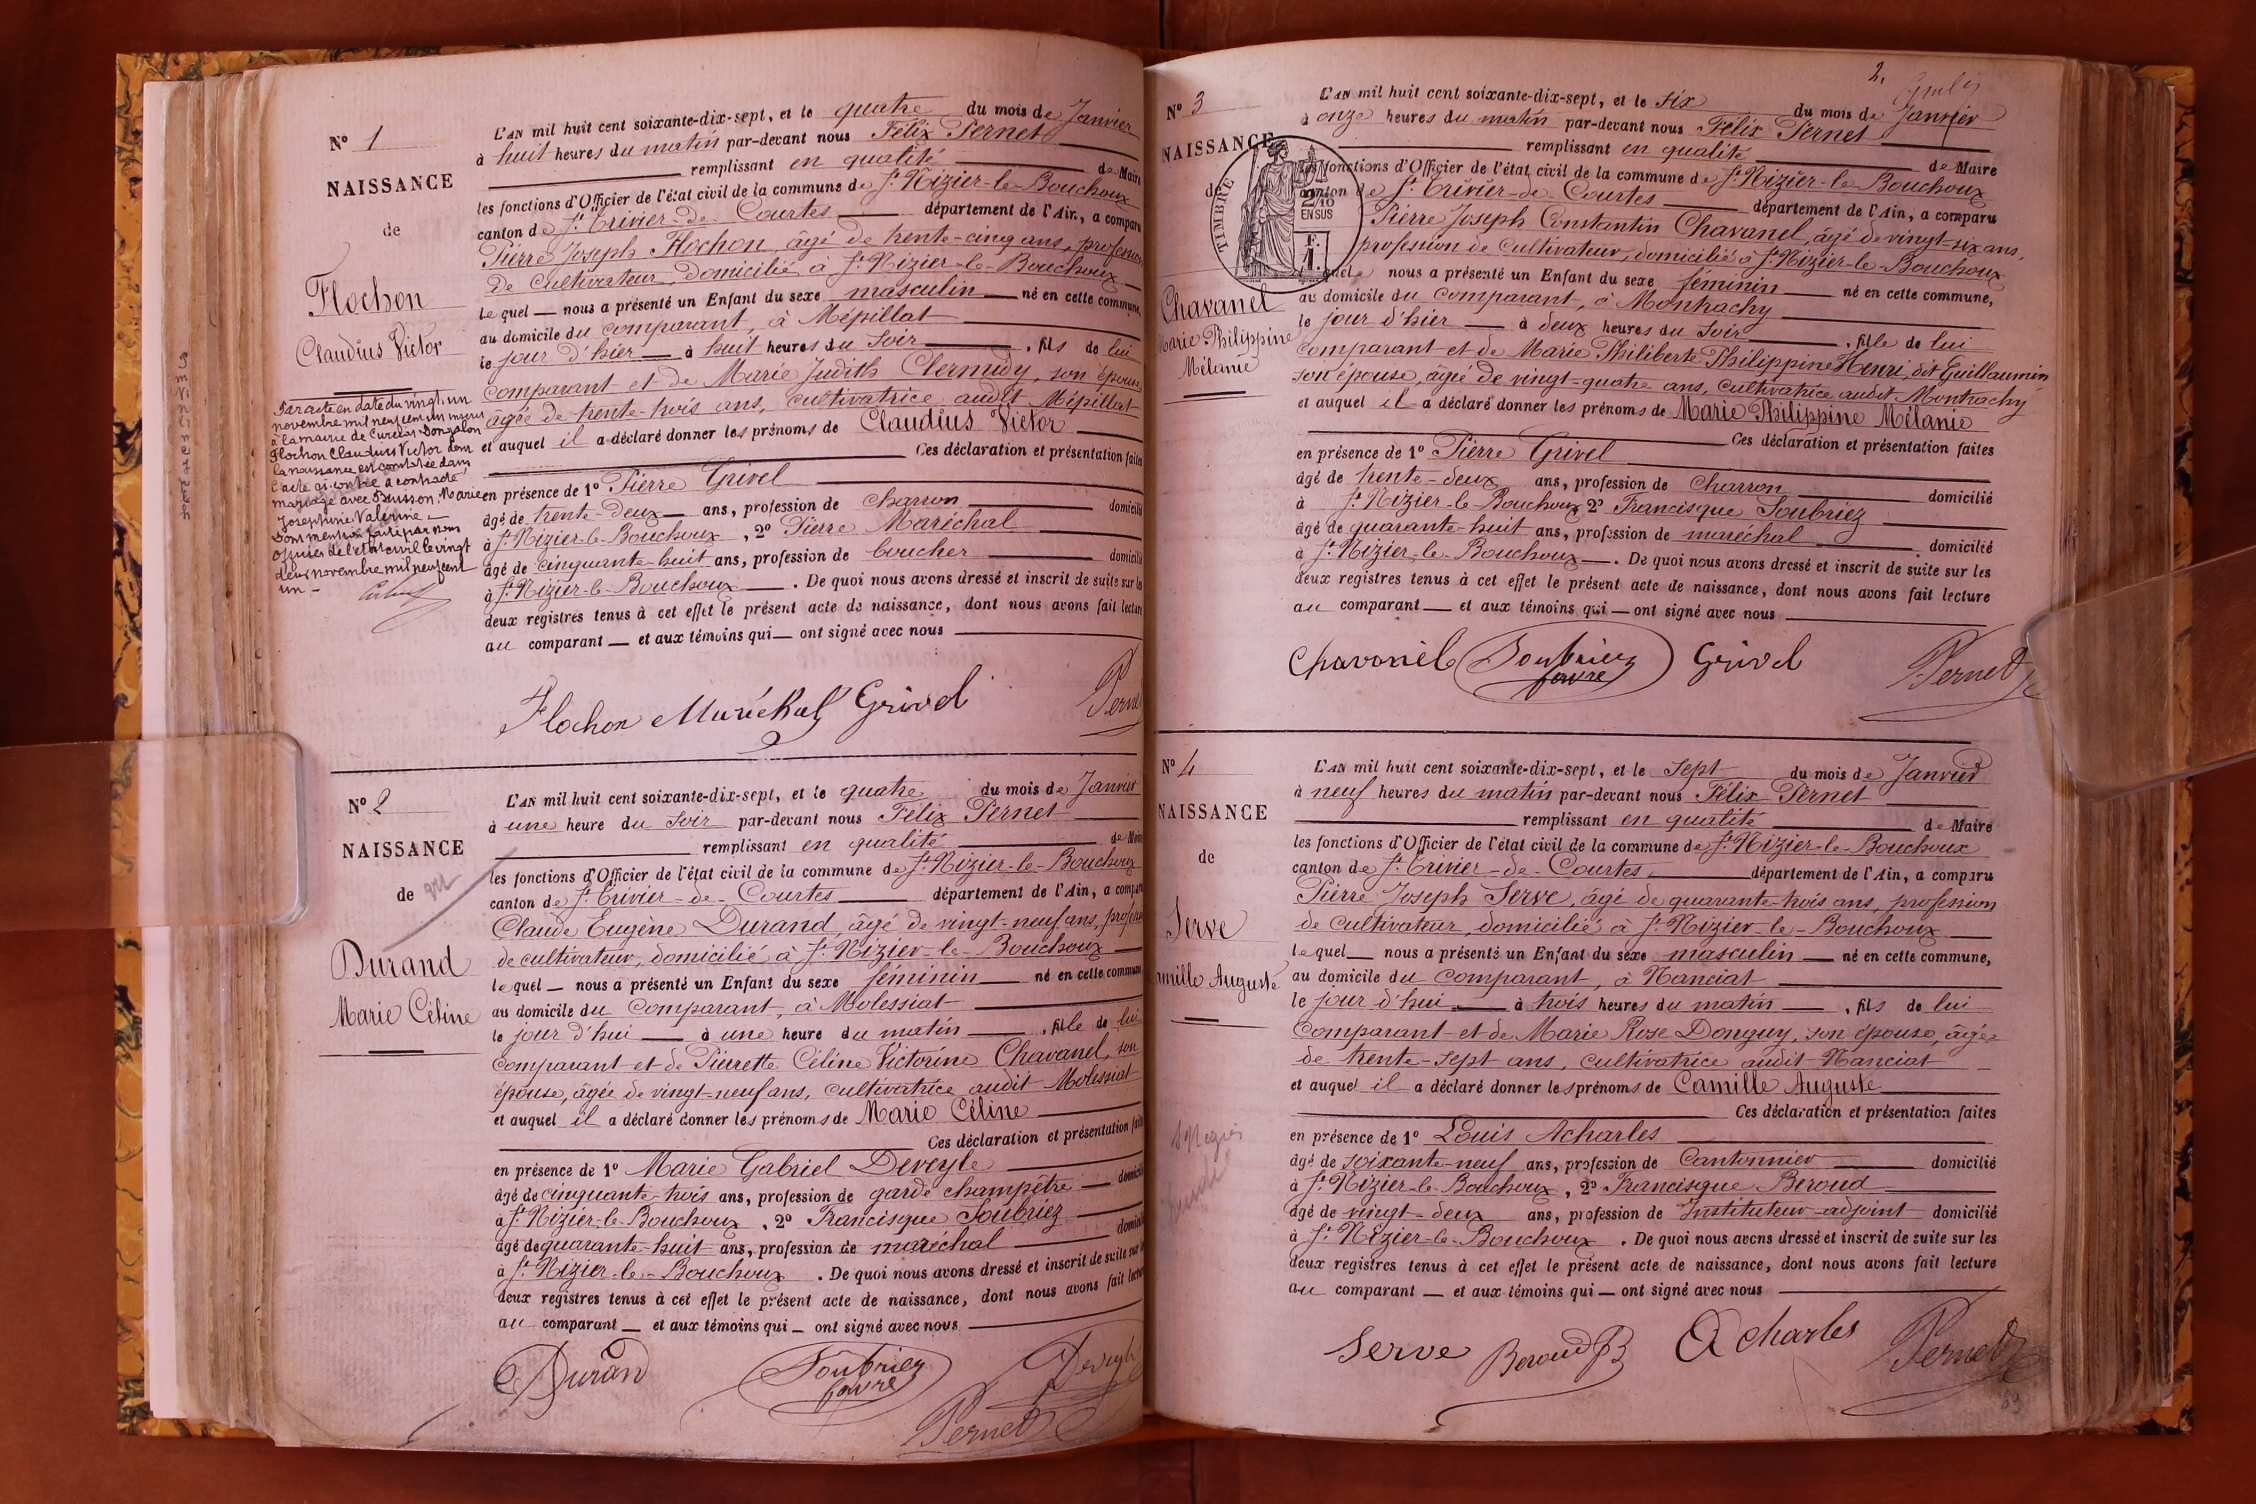 N° 1
NAISSANCE
de
Flochon
Claudius Victor
Par acte en date du vingt un
novembre mil neuf cent un inscrit
à la mairie de Curciat-Dongalon
Flochon Claudius Victor dont
la naissance est constatée dans
l'acte ci-contre a contracté
mariage avec Buisson Marie
Joséphine Valérine —
Dont mention faite par nous
officier de l'état civil le vingt
deux novembre mil neuf cent
un -
L'AN mil huit cent soixante-dix-sept, et le quatre du mois de Janvier
à huit heures du matin par-devant nous Félix Pernet
remplissant en qualité de Maire
les fonctions d'Officier de l'état civil de la commune de St Nizier-le-Bouchoux
canton de St Trivier-de-Courtes département de l'Ain, a comparu
Pierre Joseph Flochon, âgé de trente-cinq ans, profession
de cultivateur, domicilié à St Nizier-le-Bouchoux
lequel — nous a présenté un Enfant du sexe masculin — né en cette commune,
au domicile du comparant, à Mépillat
le jour d'hier — à huit heures du soir , fils de lui
comparant et de Marie Judith Clermidy, son épouse
âgée de trente-trois ans, cultivatrice audit Mépillat
et auquel il a déclaré donner les prénoms de Claudius Victor
Ces déclaration et présentation faites
en présence de 1° Pierre Grivel
âgé de trente-deux — ans, profession de charron domicilié
à St Nizier-le-Bouchoux , 2° Pierre Maréchal
âgé de cinquante-huit ans, profession de boucher domicilié
à St Nizier-le-Bouchoux . De quoi nous avons dressé et inscrit de suite sur les
deux registres tenus à cet effet le présent acte de naissance, dont nous avons fait lecture
au comparant — et aux témoins qui — ont signé avec nous
Flochon Maréchal Grivel Pernet
N° 2
NAISSANCE
de
Durand
Marie Céline
L'AN mil huit cent soixante-dix-sept, et le quatre du mois de Janvier
à une heure du soir par-devant nous Félix Pernet
remplissant en qualité de Maire
les fonctions d'Officier de l'état civil de la commune de St Nizier-le-Bouchoux
canton de St Trivier-de-Courtes département de l'Ain, a comparu
Claude Eugène Durand, âgé de vingt-neuf ans, profession
de cultivateur, domicilié à St Nizier-le-Bouchoux
lequel — nous a présenté un Enfant du sexe féminin né en cette commune
au domicile du comparant, à Molessiat
le jour d'hui — à une heure du matin , fille de lui
comparant et de Pierrette Céline Victorine Chavanel, son
épouse, âgée de vingt-neuf ans, cultivatrice audit Molessiat
et auquel il a déclaré donner les prénoms de Marie Céline
Ces déclaration et présentation faites
en présence de 1° Marie Gabriel Deveyle
âgé de cinquante-trois ans, profession de garde champêtre — domicilié
à St Nizier-le-Bouchoux , 2° Francisque Soubriez
âgé de quarante-huit ans, profession de maréchal domicilié
à St Nizier-le-Bouchoux . De quoi nous avons dressé et inscrit de suite sur les
deux registres tenus à cet effet le présent acte de naissance, dont nous avons fait lecture
au comparant — et aux témoins qui — ont signé avec nous
Durand Soubriez favre Deveyle
Pernet
2.
N° 3
NAISSANCE
de
TIMBRE
2/10
EN SUS
F.
1.
Chavanel
Marie Philippine
Mélanie
L'AN mil huit cent soixante-dix-sept, et le six du mois de Janvier
à onze heures du matin par-devant nous Félix Pernet
remplissant en qualité de Maire
les fonctions d'Officier de l'état civil de la commune de St Nizier-le-Bouchoux
canton de St Trivier-de-Courtes département de l'Ain, a comparu
Pierre Joseph Constantin Chavanel, âgé de vingt-six ans,
profession de cultivateur, domicilié à St Nizier-le-Bouchoux
lequel nous a présenté un Enfant du sexe féminin né en cette commune,
au domicile du comparant, à Montrachy
le jour d'hier — à deux heures du soir , fille de lui
comparant et de Marie Philiberte Philippine Henri, dit Guillaumin
son épouse, âgée de vingt-quatre ans, cultivatrice audit Montrachy
et auquel il a déclaré donner les prénoms de Marie Philippine Mélanie
Ces déclaration et présentation faites
en présence de 1° Pierre Grivel
âgé de trente-deux ans, profession de Charron domicilié
à St Nizier-le-Bouchoux 2° Francisque Soubriez
âgé de quarante-huit ans, profession de maréchal domicilié
à St Nizier-le-Bouchoux . De quoi nous avons dressé et inscrit de suite sur les
deux registres tenus à cet effet le présent acte de naissance, dont nous avons fait lecture
au comparant — et aux témoins qui — ont signé avec nous
Chavanel Soubriez favre Grivel Pernet
N° 4
NAISSANCE
de
Serve
Camille Auguste
L'AN mil huit cent soixante-dix-sept, et le sept du mois de Janvier
à neuf heures du matin par-devant nous Félix Pernet
remplissant en qualité de Maire
les fonctions d'Officier de l'état civil de la commune de St Nizier-le-Bouchoux
canton de St Trivier-de-Courtes département de l'Ain, a comparu
Pierre Joseph Serve, âgé de quarante-trois ans, profession
de cultivateur, domicilié à St Nizier-le-Bouchoux
lequel — nous a présenté un Enfant du sexe masculin — né en cette commune,
au domicile du comparant, à Nanciat
le jour d'hui — à trois heures du matin , fils de lui
comparant et de Marie Rose Donguy, son épouse, âgée
de trente-sept ans, cultivatrice audit Nanciat
et auquel il a déclaré donner les prénoms de Camille Auguste
Ces déclaration et présentation faites
en présence de 1° Louis Acharles
âgé de soixante-neuf ans, profession de Cantonnier domicilié
à St Nizier-le-Bouchoux , 2° Francisque Beroud
âgé de vingt-deux ans, profession de Instituteur-adjoint domicilié
à St Nizier-le-Bouchoux . De quoi nous avons dressé et inscrit de suite sur les
deux registres tenus à cet effet le présent acte de naissance, dont nous avons fait lecture
au comparant — et aux témoins qui — ont signé avec nous
Serve Beroud Acharles Pernet